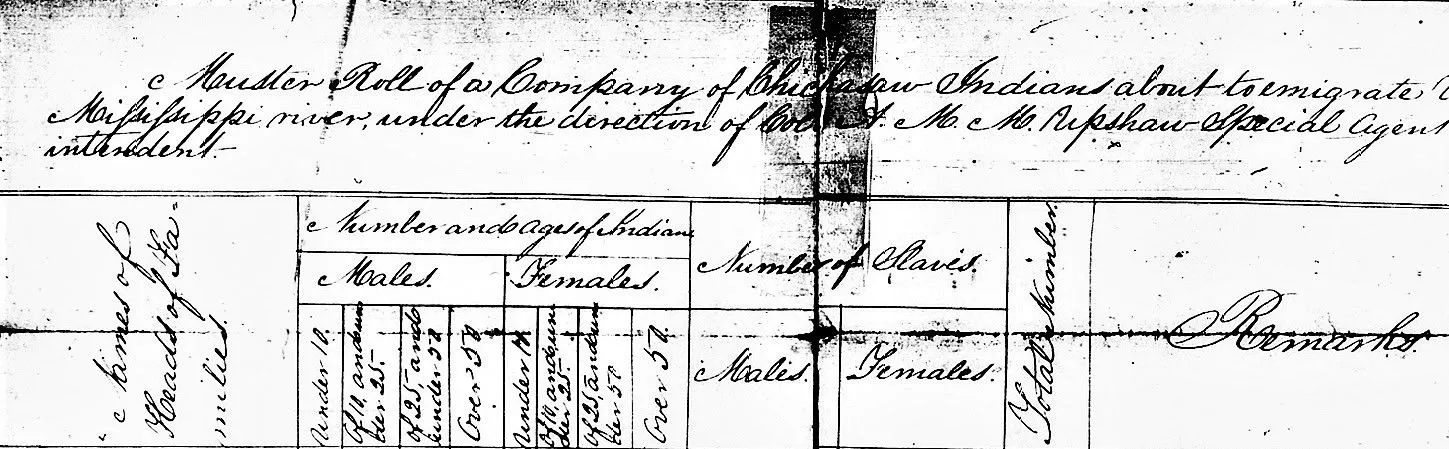 Muster Roll of a Company of Chickasaw Indians about to emigrate
Mississippi river, under the direction of Col. A. M. M. Upshaw Special Agent
intendent.
Names of
Heads of Fa-
milies.
Number and ages of Indians
Males.
Females.
Number of Slaves.
Total Number.
Remarks.
Under 10.
Of 10, and un
der 25.
Of 25, and
under 50
Over 50
Under 10.
Of 10, and un
der 25.
Of 25, and un
der 50
Over 50.
Males.
Females.